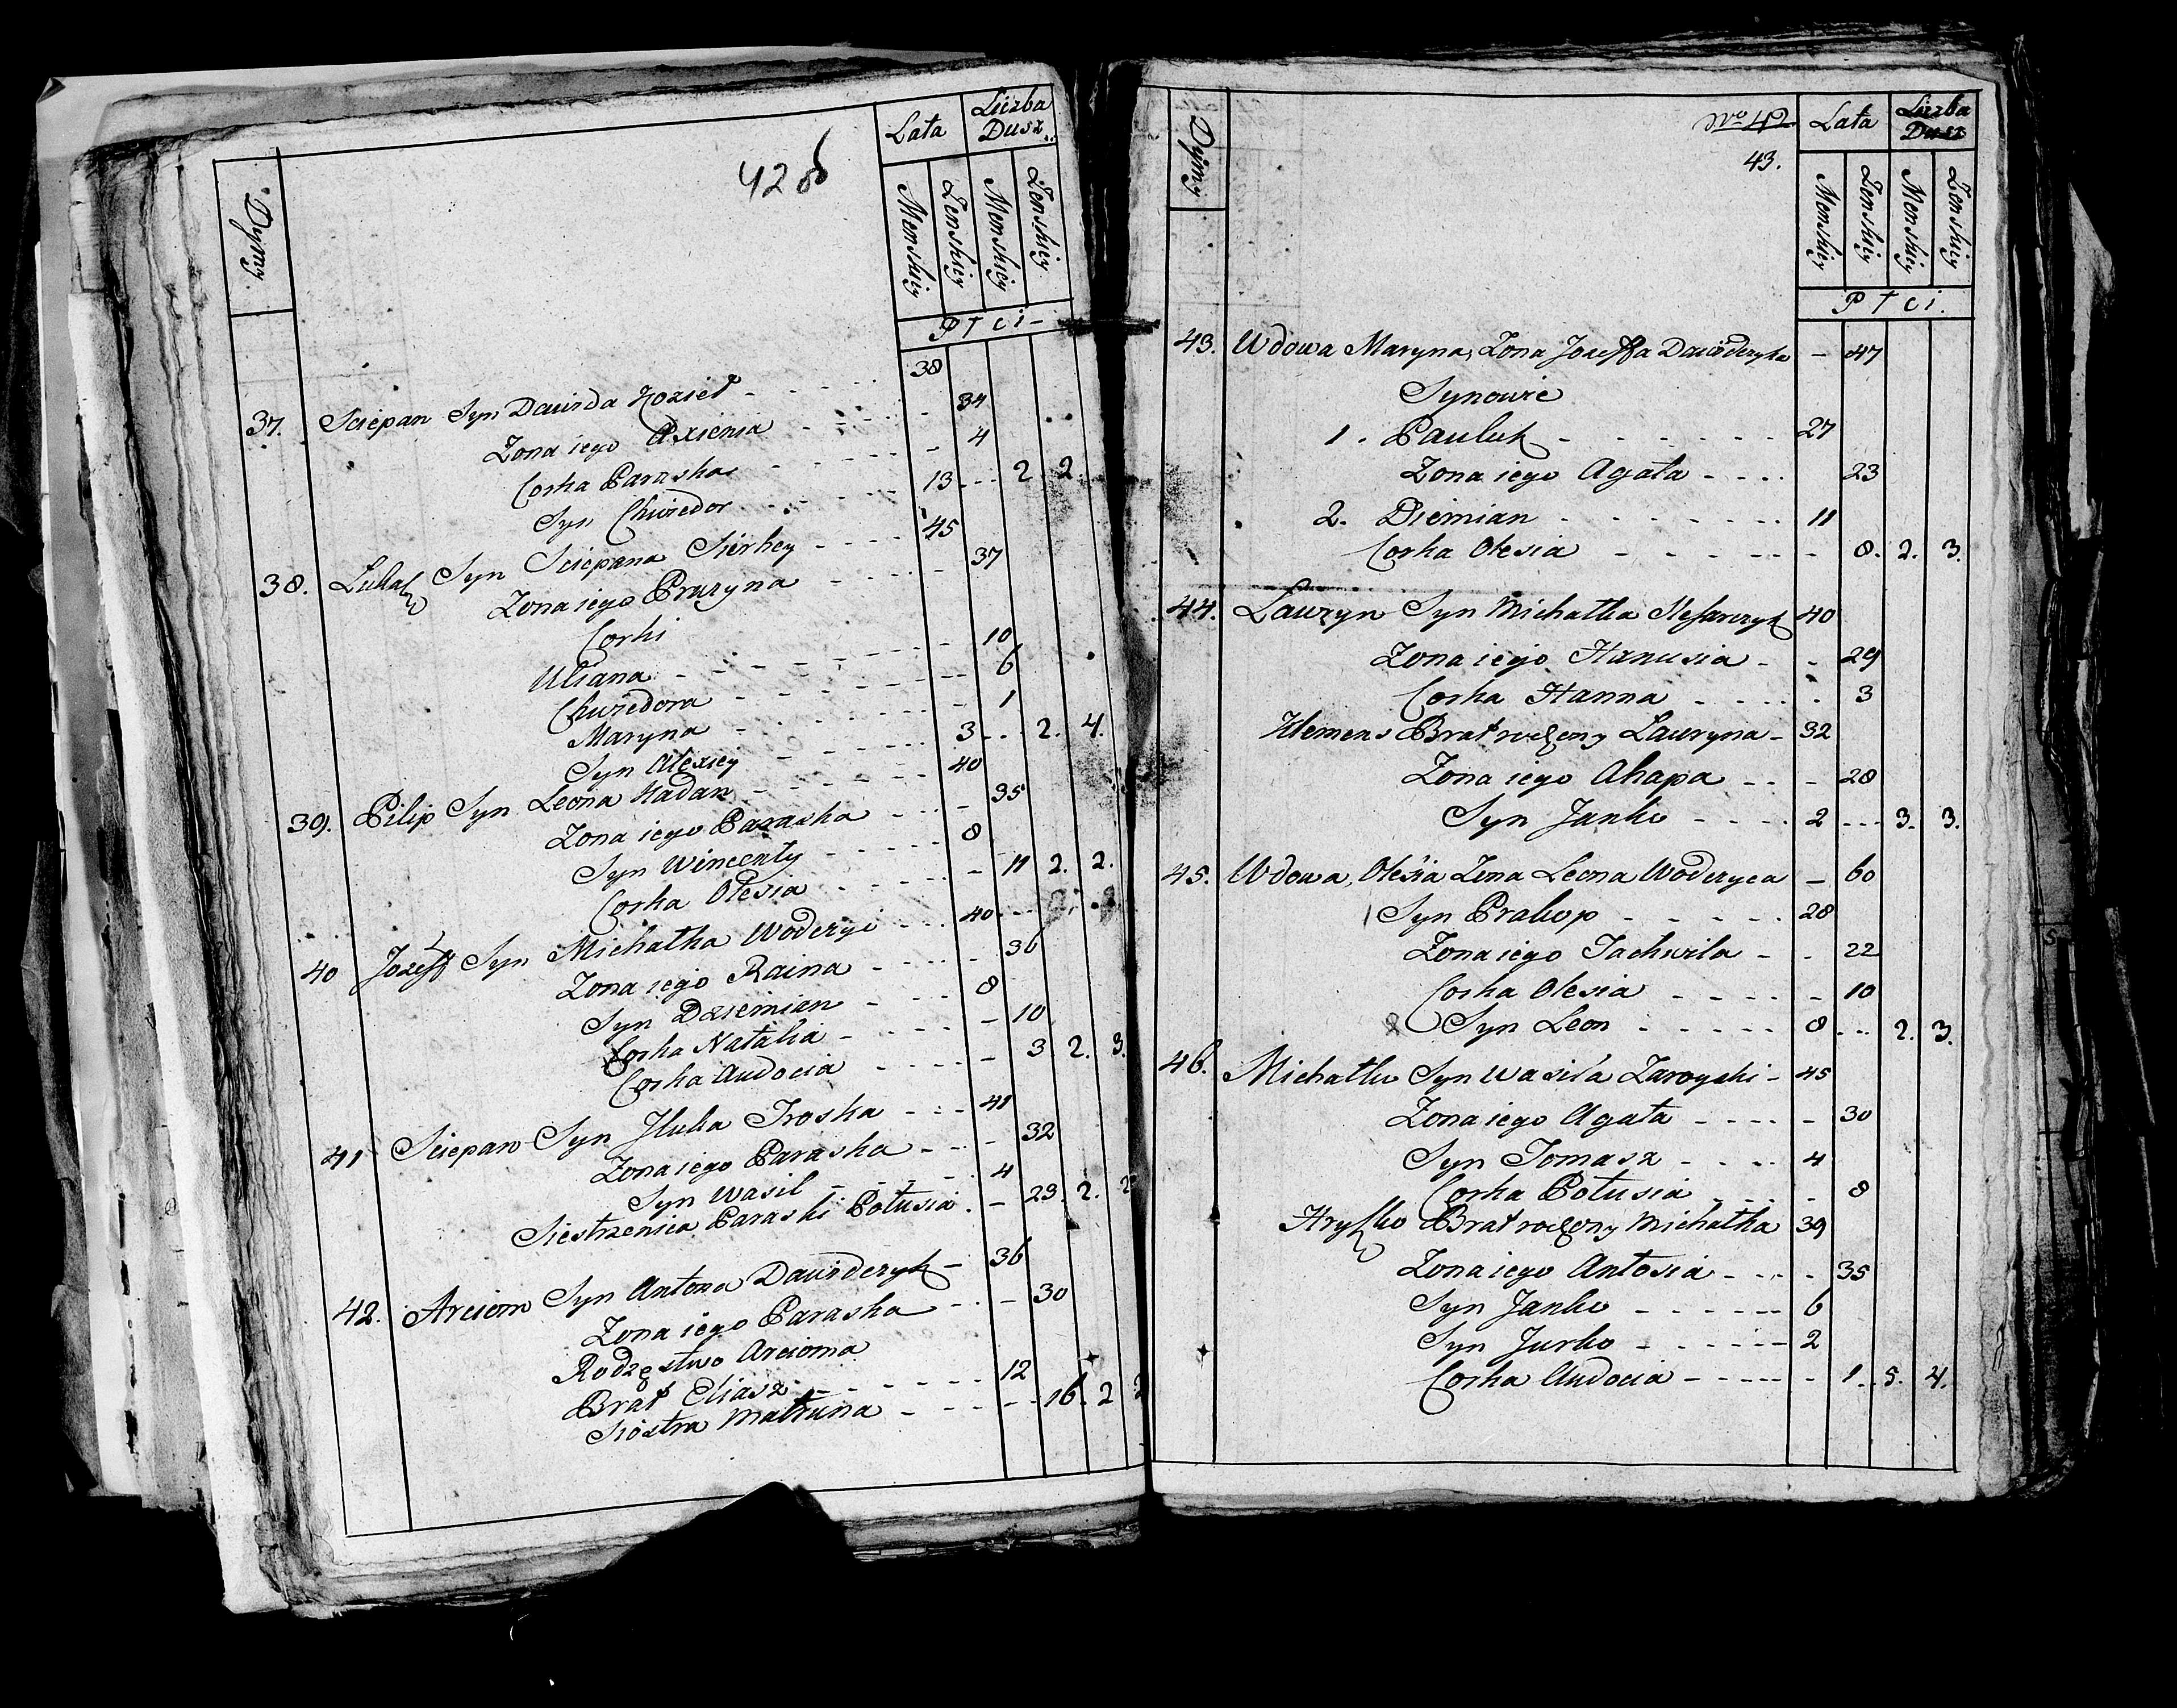 42 об
Dymy
Lata
Liczba Dusz
Menskiey
Zenskiey
Menskiey
Zenskiey
Płci
37. Sciepan Syn Dawida Kozieł - 38
Zona iego Axienia - 34
Corka Paraska - 4
Syn Chwiedor 13 - 2. 2.
38. Lukasz Syn Sciepana Sierhey - 45
Zona iego Pruzyna - 37
Corki
Uliana - 10
Chwiedora - 6
Maryna - 1
Syn Alexiey - 3 - 2. 4.
39. Pilip Syn Leona Hadan - 40
Zona iego Paraska - 35
Syn Wincenty - 8
Corka Olesia - 11 2. 2.
40 Jozeff Syn Michałka Woderyc - 40
Zona iego Raina - 36
Syn Dziemian - 8
Corka Natalia - 10
Corka Audocia - 3 2. 3.
41 Sciepan Syn Iluka Troska - 41
Zona iego Paraska - 32
Syn Wasil - 4
Siestrzenica Paraski Połusia - 23. 2. 2
42. Arciom Syn Antona Dawideryk - 36
Zona iego Paraska - 30
Rodzęstwo Arcioma
Brat Eliasz - 12
Siostra Matruna - 16. 2
Dymy
43.
Lata
Liczba Dusz
Menskiey
Zenskiey
Menskiey
Zenskiey
Płci.
43. Wdowa Maryna, Zona Jozeffa Dawideryka - 47
Synowie
1. Pauluk - 27
Zona iego Agata - 23
2. Diemian - 11
Corka Olesia - 8. 2. 3.
44. Lawryn Syn Michałka 40
Zona iego Hanusia - 29
Corka Hanna - 3
Klemens Brat rodzony Lawryna - 32
Zona iego Ahapa - 28
Syn Janko - 2 - 3. 3.
45. Wdowa, Olesia Zona Leona Woderyca - 60
1 Syn Prakop - 28
Zona iego Tachwila - 22
Corka Olesia - 10
2 Syn Leon - 8 - 2. 3.
46. Michałko Syn Wasila Zaroyski - 45
Zona iego Agata - 30
Syn Tomasz - 4
Corka Połusia - 8
Hryszko Brat rodzony Michałka 39
Zona iego Antosia - 35
Syn Janko - 6
Syn Jurko - 2
Corka Audocia - 1. 5. 4.